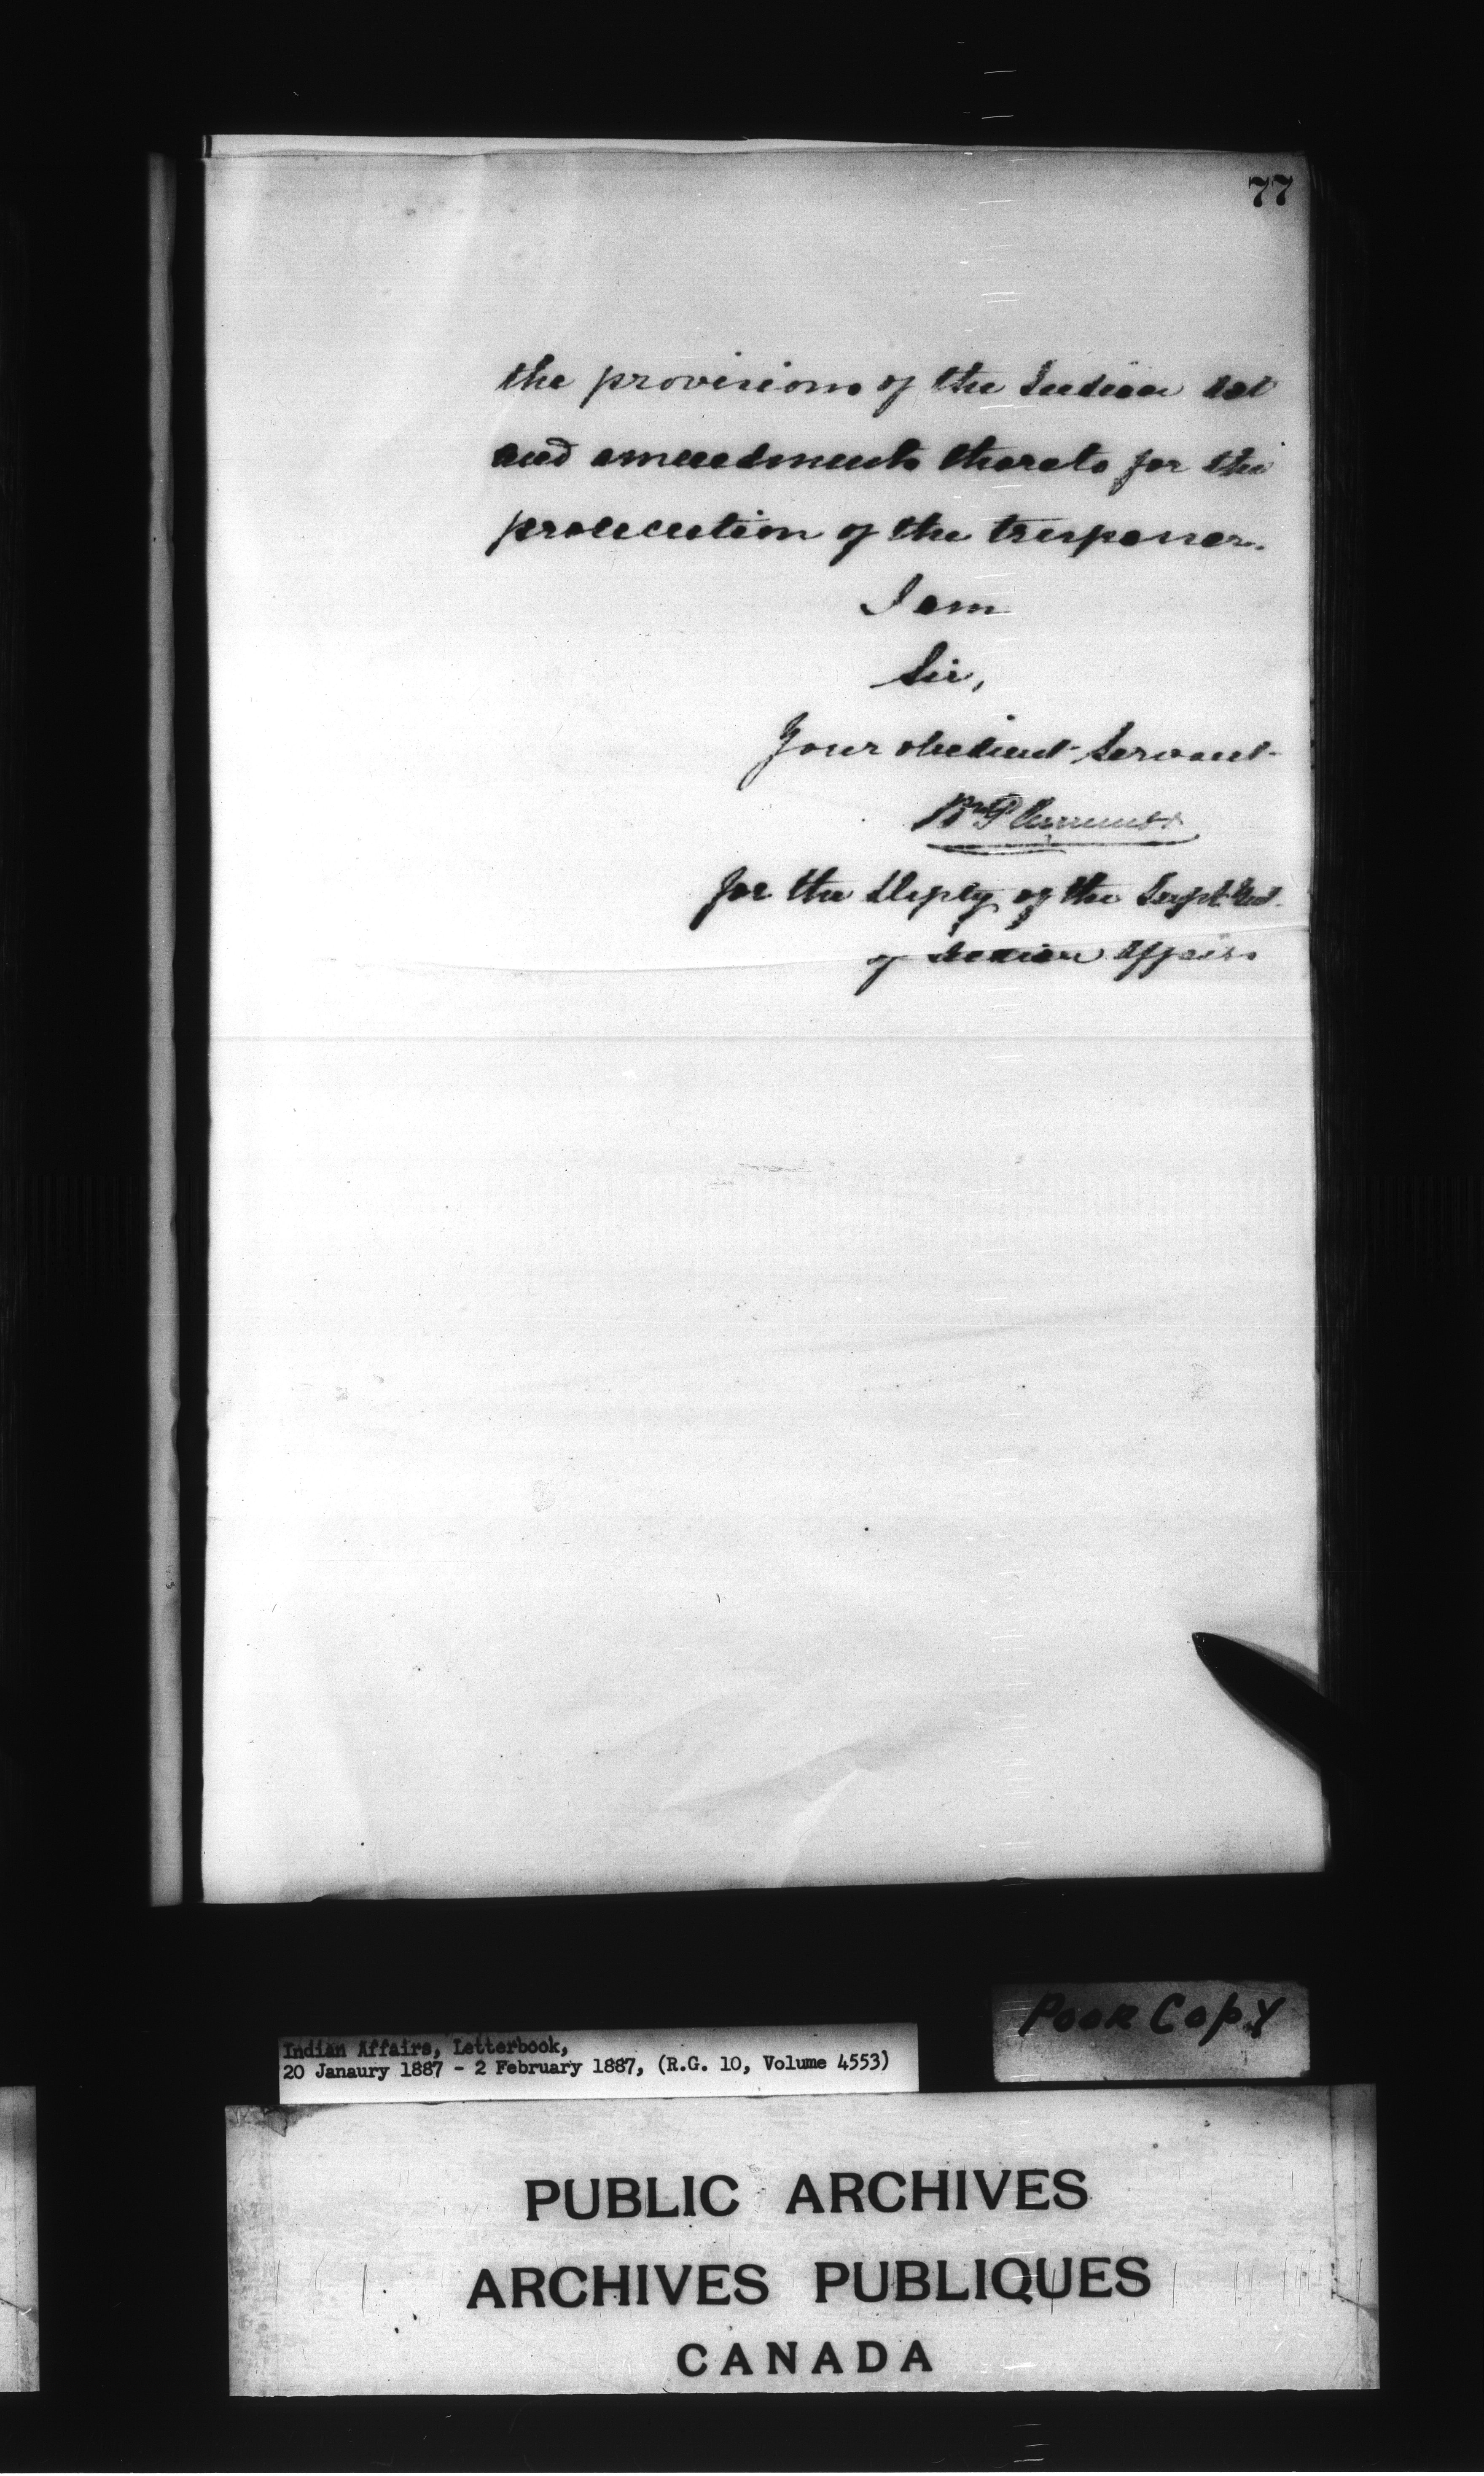 77
the provisions of the Indian Act
and amendments thereto for the
prosecution of the trespasser.
I am
Sir,
Your obedient Servant
for the Deputy of the Supt. Genl.
of Indian Affairs
Poor Copy
Indian Affairs, Letterbook,
20 Janaury 1887 - 2 February 1887, (R.G. 10, Volume 4553)
PUBLIC ARCHIVES
ARCHIVES PUBLIQUES
CANADA